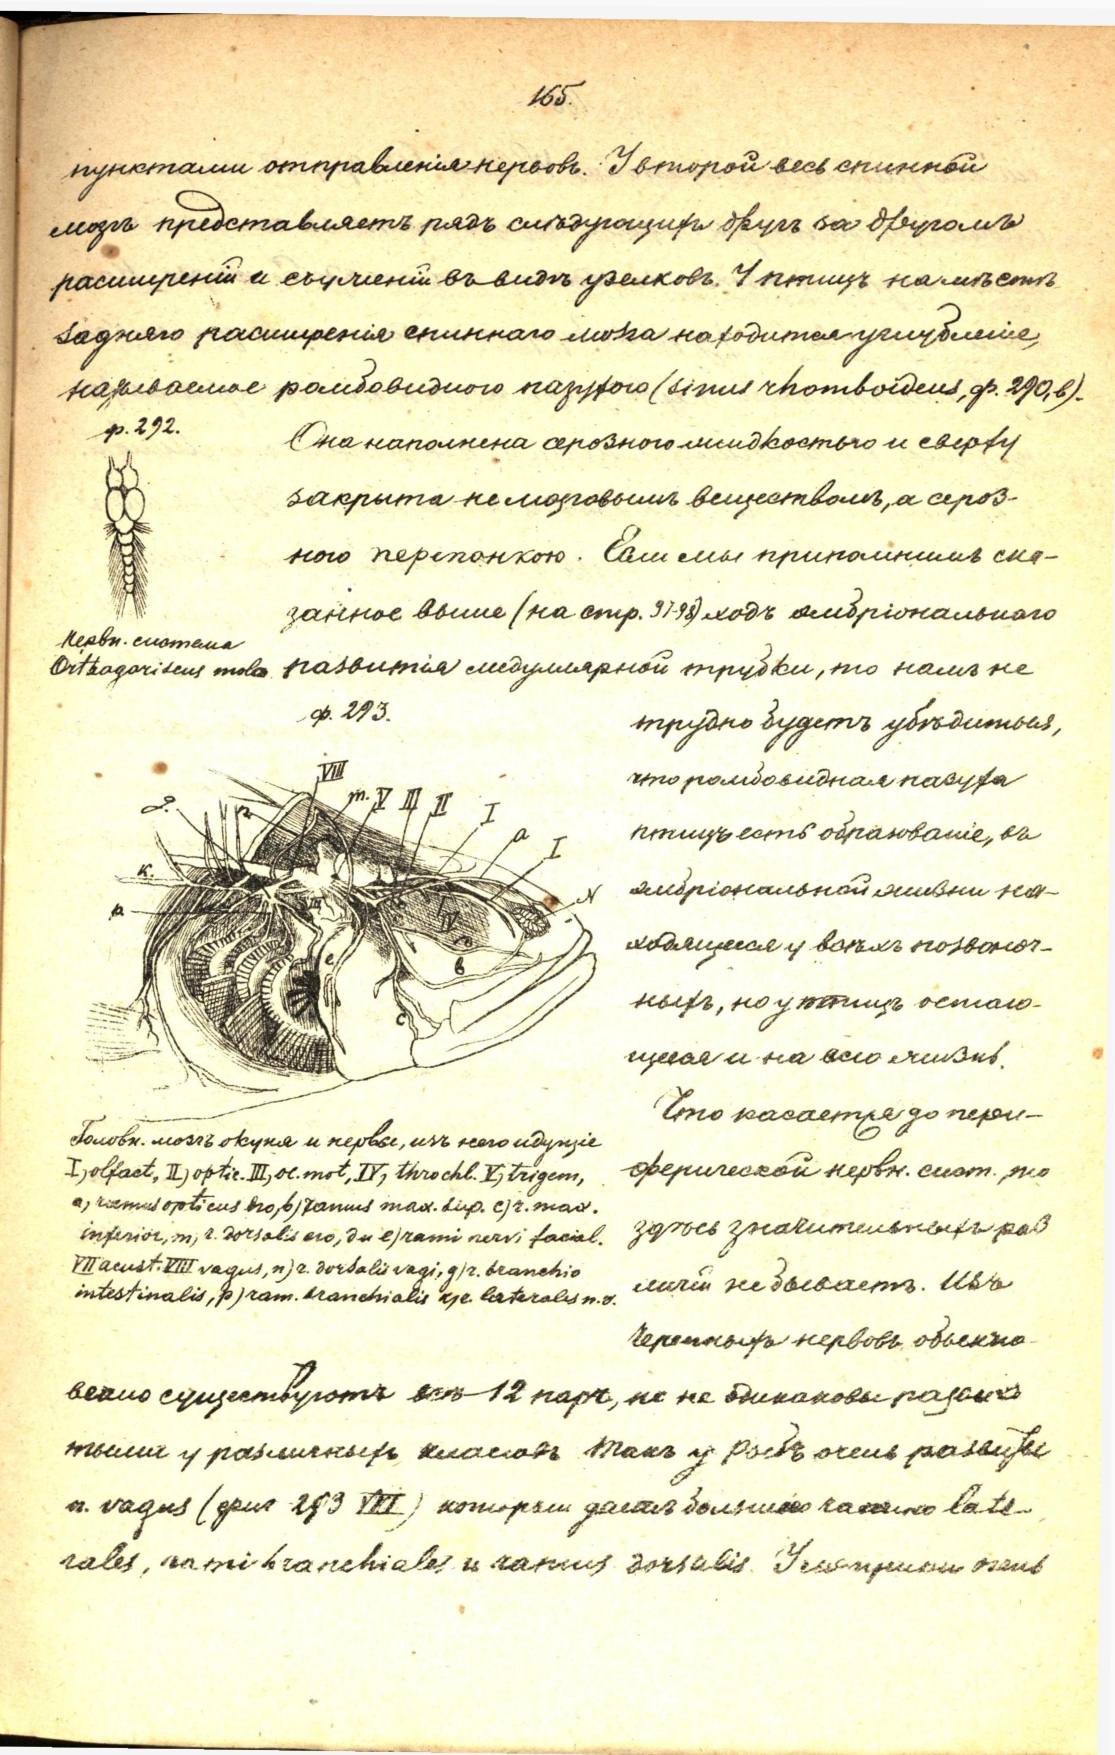 165.
пунктами отправленія нервовъ. У второй весь спинной
мозгъ представляетъ рядъ слѣдующихъ другъ за другомъ
расширеній и съуженій въ видѣ узелковъ. У птицъ на мѣстѣ
задняго расширенія спиннаго мозга находится углубленіе,
называемое ромбовидною пазухою (sinus rhomboideus, ф. 290, в).
ф. 292.
Она наполнена серозною жидкостью и сверху
закрыта не мозговымъ веществомъ, а сероз-
ною перепонкою. Если мы припомнимъ ска-
занное выше (на стр. 97-98) ходъ эмбріональнаго
развитія медуллярной трубки, то намъ не
Нервн. система
Orthagoriscus mola
ф. 293.
трудно будетъ убѣдиться,
что ромбовидная пазуха
птицъ есть образованіе, въ
эмбріональной жизни на-
ходящееся у всѣхъ позвоноч-
ныхъ, но у птицъ остаю-
щееся и на всю жизнь.
VIII
m. V III II I a I N
g. n.
к.
p
IV
в
e
c
Головн. мозгъ окуня и нервы, изъ него идущіе
I, olfact, II, optic. III, oc. mot, IV, throchl. V, trigem,
a, ramus opticus ero, b) ramus max. sup. c) r. max.
inferior, m, r. dorsalis ero, d и e) rami nervi facial.
VII acust. VIII vagus, n) r. dorsalis vagi, g) r. branchio
intestinalis, p) ram. branchialis к, r. lateralis n. v.
Что касается до пери-
ферической нервн. сист. то
здѣсь значительныхъ раз
личій не бываетъ. Изъ
черепныхъ нервовъ обыкно-
венно существуютъ всѣ 12 паръ, но не одинаково разви
тыми у различныхъ класовъ Такъ у рыбъ очень развитъ
n. vagus (фиг 293 VIII) которыи даетъ большею частью late-
rales, rami branchiales и ramus dorsalis. У очень